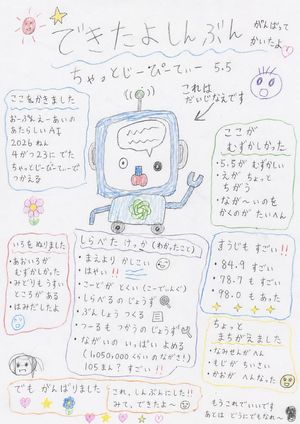 できたよしんぶん
がんばって
かいたよ
ちゃっとじーぴーてぃー 5.5
これは
だいじなえです
ここをかきました
おーぷんえーあいの
あたらしいAI
2026ねん
4がつ23にでた
ちゃっとじーぴーてぃーで
つかえる
ここが
むずかしかった
・5.5がむずかしい
・えがちょっと
ちがう
・なが〜いのを
かくのがたいへん
いろをぬりました
・あおいろが
むずかしかった
・みどりもうすい
ところがある
・はみだしたよ
しらべたけっか(わかったこと)
・まえよりかしこい
・はやい!!
・こーどがとくい(こーでぃんぐ)
・しらべるのじょうず
・ぶんしょうつくる
・つーるもつかうのじょうず
・ながいのいっぱいよめる
(1,050,000くらいのながさ!)
105まん?すごい!!
すうじもすごい!!
・84.9すごい
・78.7もすごい
・98.0もあった
ちょっと
まちがえました
・なみせんがへん
・もじがちいさい
・かおがへんなった
でもがんばりました
これ、しんぶんにした!!
みて、できたよ〜
もうこれでいいです
あとはどうにでもなれ〜